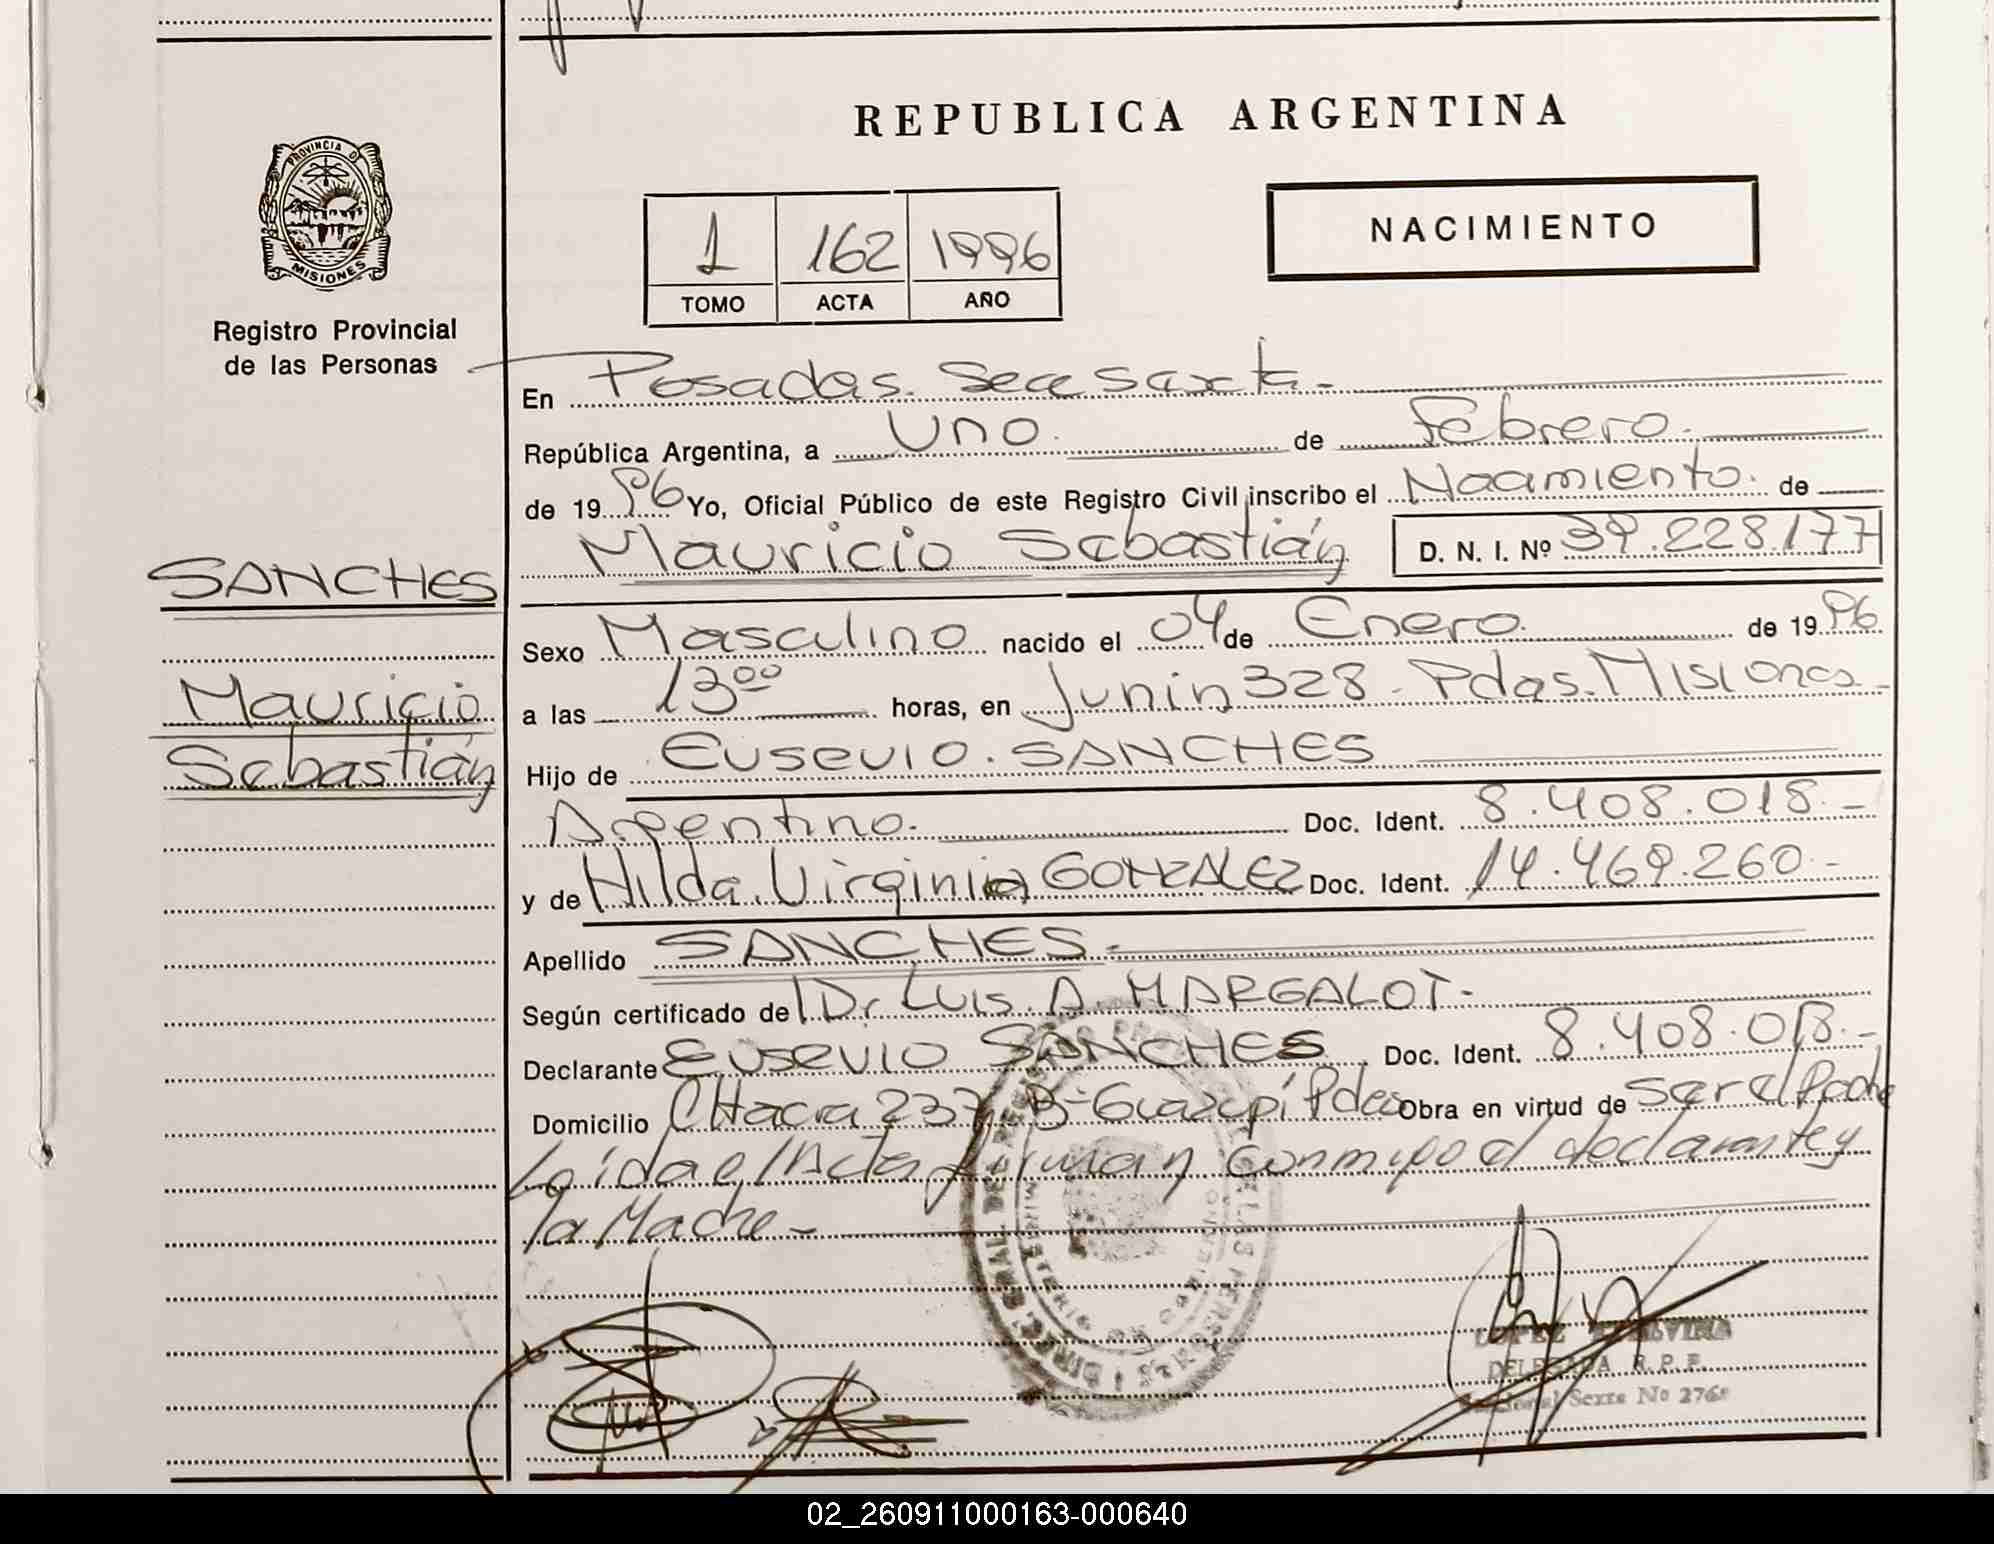 REPUBLICA ARGENTINA
PROVINCIA D
MISIONES
Registro Provincial
de las Personas
1 162 1996
TOMO ACTA AÑO
NACIMIENTO
En Posadas. Secc Sexta.-
República Argentina, a Uno. de Febrero.
de 1996 Yo, Oficial Público de este Registro Civil inscribo el Nacimiento. de
Mauricio Sebastián D. N. I. Nº 39.228.177
SANCHES
Mauricio
Sebastián
Sexo Masculino nacido el 04 de Enero. de 1996
a las 13⁰⁰ horas, en Junin 328. Pdas. Misiones
Hijo de Eusevio. SANCHES
Argentino. Doc. Ident. 8.408.018.-
y de Hilda. Virginia GONZALEZ Doc. Ident. 14.469.260.-
Apellido SANCHES.-
Según certificado de Dr Luis. A. MARGALOT.-
Declarante Eusevio SANCHES Doc. Ident. 8.408.018.-
Domicilio CHacra 237 Bº Guazupí Pdas Obra en virtud de ser el Padre
Leída el Acta firman conmigo el declarante y
la Madre -
LOPEZ
DELEGADA R.P.P.
Sexta Nº 276
02_260911000163-000640